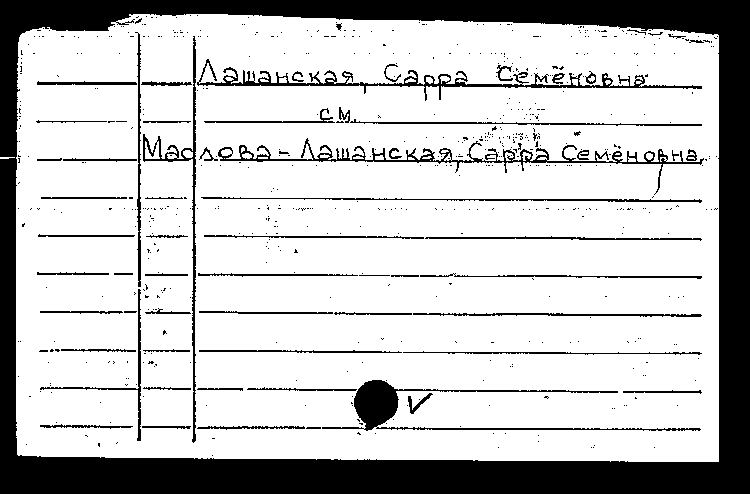 Лашанская, Сарра Семёновна
см.
Маслова - Лашанская, Сарра Семёновна.